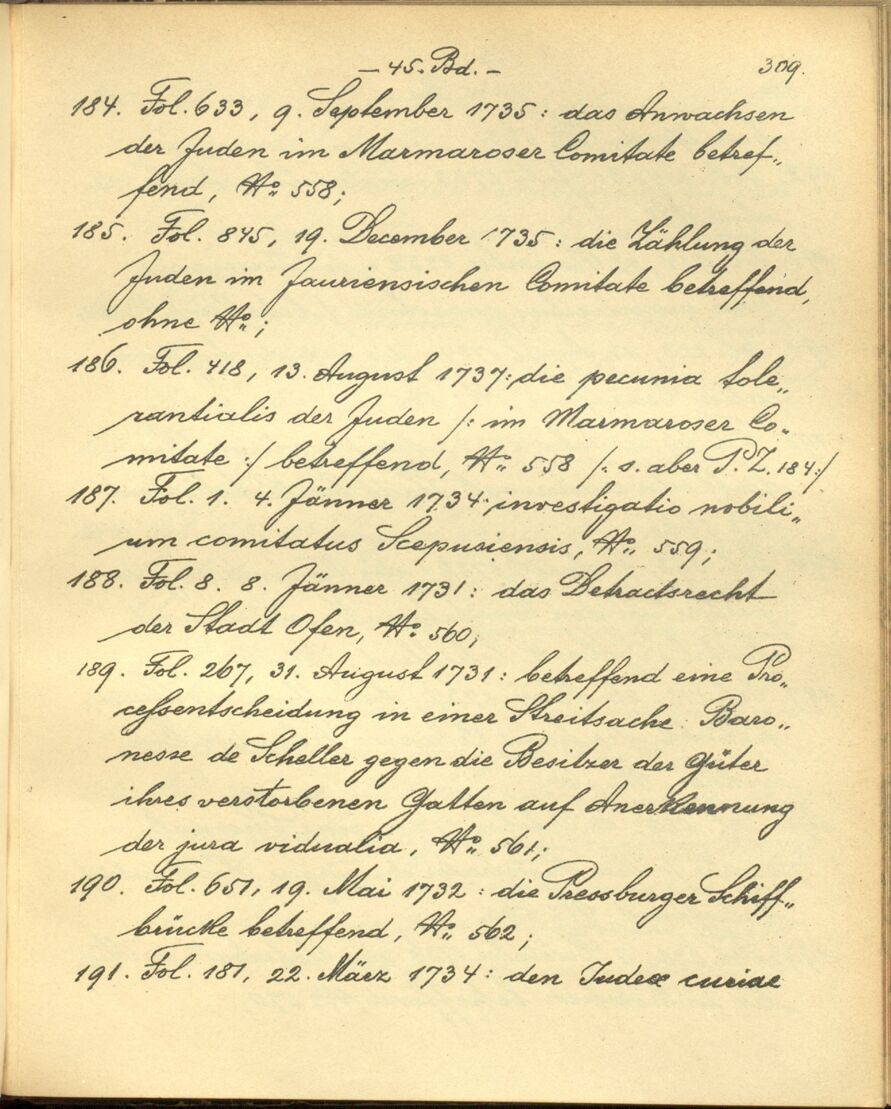 – 45. Bd. – 309.
184. Fol. 633, 9. September 1735: das Anwachsen
der Juden im Marmaroser Comitate betref„
fend, No. 558;
185. Fol. 845, 19. December 1735: die Zählung der
Juden im Jauriensischen Comitate betreffend,
ohne No.;
186. Fol. 418, 13. August 1737: die pecunia tole„
rantialis der Juden /: im Marmaroser Co„
mitate :/ betreffend, No. 558 /: s. aber P. Z. 184 :/
187. Fol. 1. 4. Jänner 1734: investigatio nobili„
um comitatus Scepusiensis, No. 559;
188. Fol. 8. 8. Jänner 1731: das Detractsrecht
der Stadt Ofen, No. 560;
189. Fol. 267, 31. August 1731: betreffend eine Pro„
cessentscheidung in einer Streitsache: Baro„
nesse de Scheller gegen die Besitzer der Güter
ihres verstorbenen Gatten auf Anerkennung
der jura vidualia, No. 561;
190. Fol. 651, 19. Mai 1732: die Pressburger Schiff„
brücke betreffend, No. 562;
191. Fol. 181, 22. März 1734: den Judex curiae